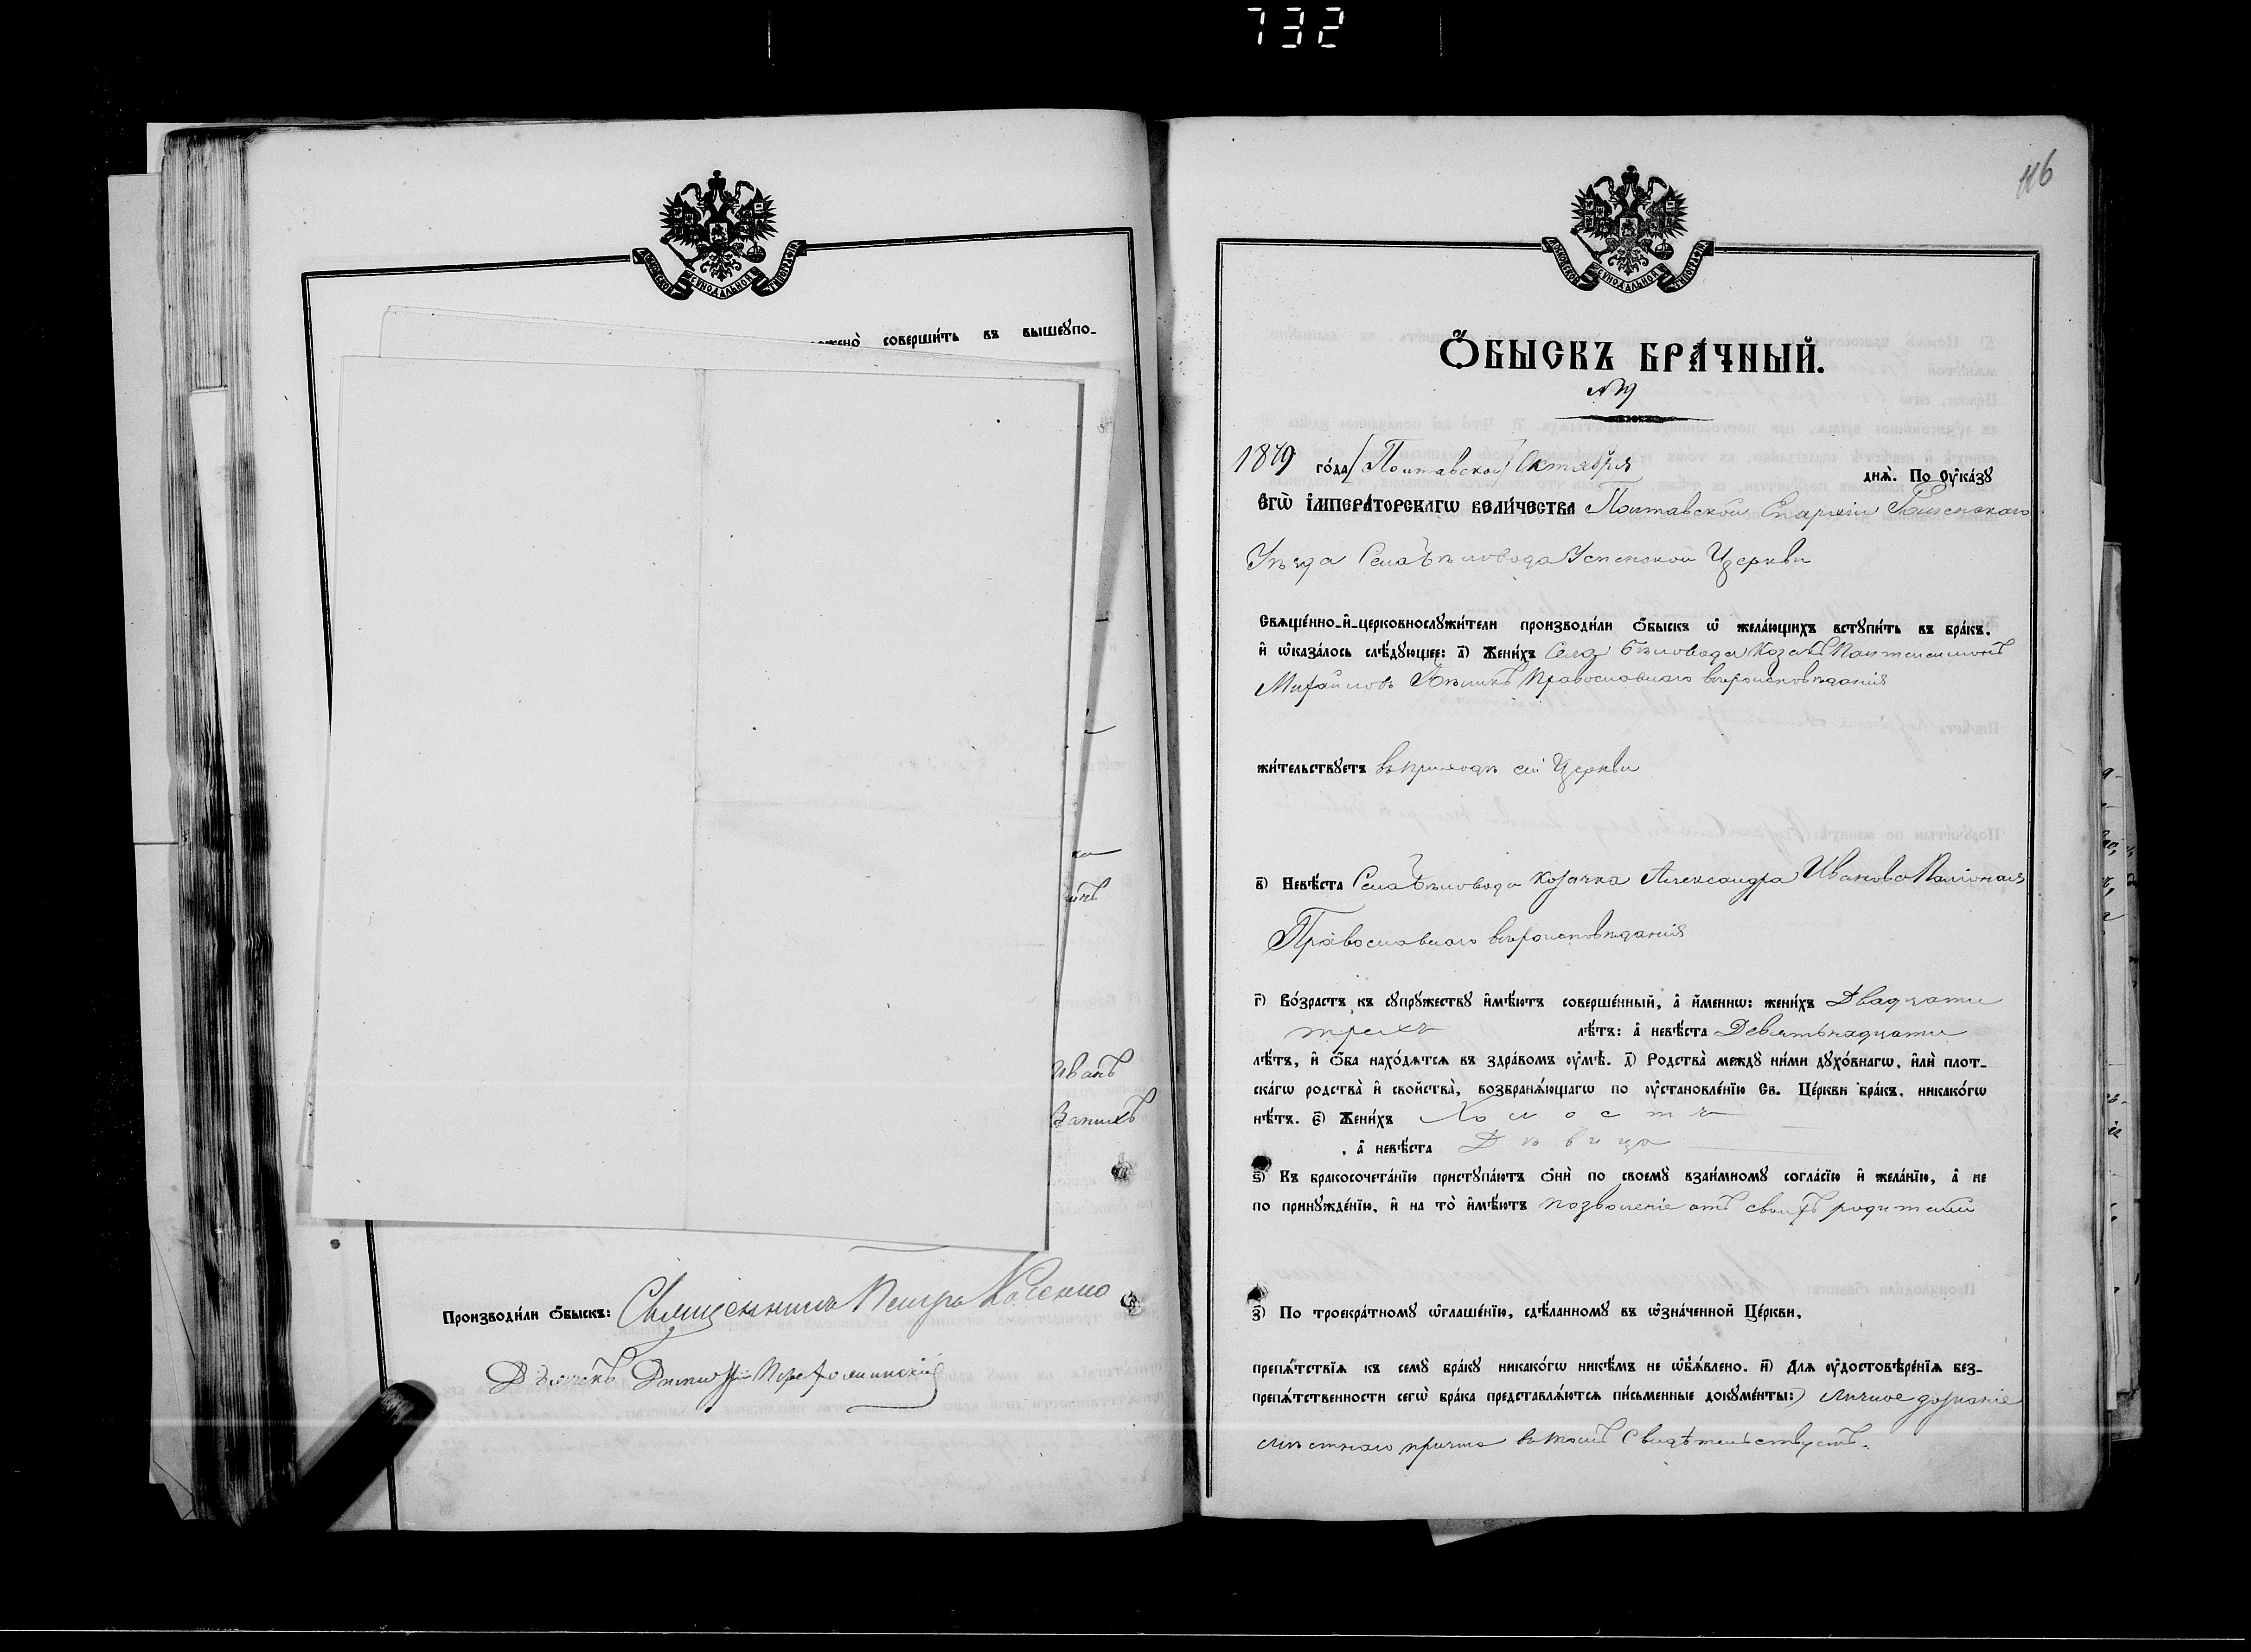 732
МОСКОВСКОЙ СѴНОДАЛЬНОЙ ТИПОГРАФІИ
совершить въ вышеупо-
Иванъ
Производили обыскъ: Священникъ Петръ Косенко
Дьячекъ Димитрій
116
МОСКОВСКОЙ СѴНОДАЛЬНОЙ ТИПОГРАФІИ
Ѻ҆БЫСКЪ БРА́ЧНЫЙ.
1879 го́да Октября днѧ̀. По Оу҆ка́зу
Є҆ГѠ̀ І҆МПЕРА́ТОРСКАГѠ ВЕЛИ́ЧЕСТВА Полтавской Епархіи
Уѣзда Села Бѣловода Успенской Церкви
Свѧще́нно-и҆-церковнослужи́тели производи́ли ѻ҆́быскъ ѡ҆ жела́ющихъ вступи́ть въ бра́къ,
и҆ ѡ҆каза́лось слѣ́дующее: а҃) Жени́хъ Села Бѣловода Козакъ Пантелеимонъ
Михайловъ Православнаго вѣроисповѣданія
жи́тельствуетъ въ приходѣ сей Церкви
в҃) Невѣ́ста Села Бѣловода козачка Александра Иванова
Православнаго вѣроисповѣданія
г҃) Во́зрастъ къ супру́жеству и҆мѣ́ютъ соверше́нный, а҆ и҆́менно: жени́хъ Двадцати
трехъ лѣ́тъ: а҆ невѣ́ста Девятьнадцати
лѣ́тъ, и҆ ѻ҆́ба нахо́дѧтсѧ въ здра́вомъ оу҆мѣ̀. д҃) Родства̀ между ни́ми духо́внагѡ, и҆лѝ плот-
ска́гѡ родства̀ и҆ свойства̀, возбранѧ́ющагѡ по оу҆становле́нїю Св. Це́ркви бра́къ, никако́гѡ
нѣ́тъ. є҃) Жени́хъ Холостъ
, а҆ невѣ́ста Дѣвица
ѕ҃) Къ бракосочета́нїю приступа́ютъ ѻ҆нѝ по своемꙋ̀ взаи́мному согла́сїю и҆ жела́нїю, а҆ не
по принужде́нїю, и҆ на то̀ и҆мѣ́ютъ позволеніе отъ своихъ родителей
з҃) По троекра́тному ѡ҆глаше́нїю, сдѣ́ланному въ ѡ҆зна́ченной Це́ркви,
препѧ́тствїѧ къ сему̀ бра́ку никако́гѡ никѣ́мъ не ѡ҆б̾ѧ́влено. и҃) Для оу҆достовѣре́нїѧ без-
препѧ́тственности сегѡ̀ бра́ка представлѧ́ются пи́сьменные докуме́нты: личное дознаніе
мѣстнаго причта въ томъ свидѣтельствуетъ.